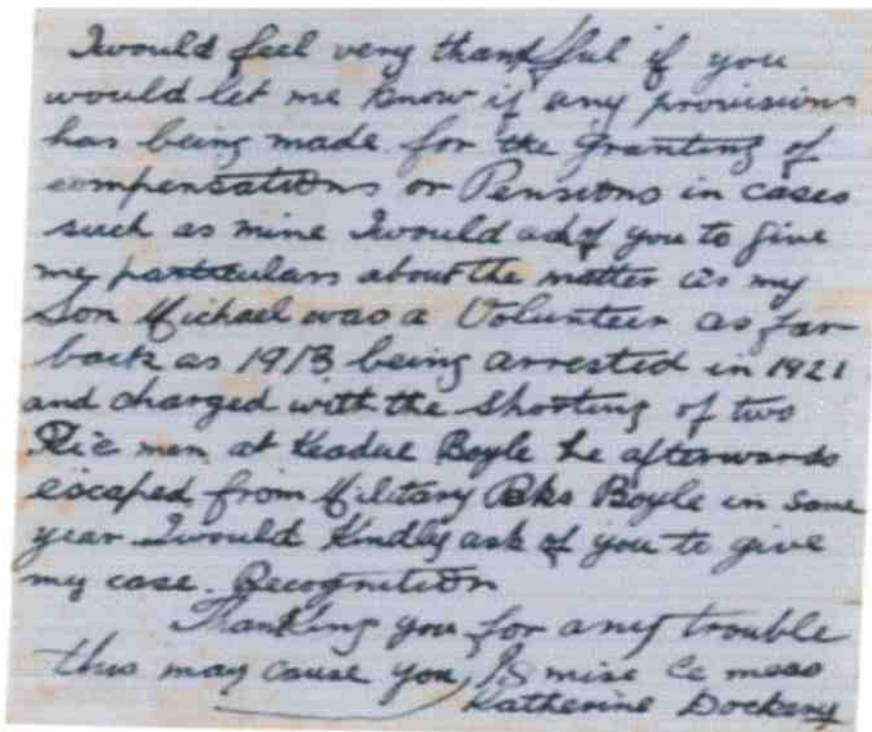 I would feel very thankful if you
would let me know if any provisions
has being made for the granting of
compensations or Pensions in cases
such as mine I would ask of you to give
me particulars about the matter as my
Son Michael was a Volunteer as far
back as 1913 being arrested in 1921
and charged with the Shooting of two
Ric men at Keadue Boyle he afterwards
escaped from Military Bks Boyle in same
year I would Kindly ask of you to give
my case Recognition
Thanking you for any trouble
this may cause you, Is mise le meas
Katherine Dockery